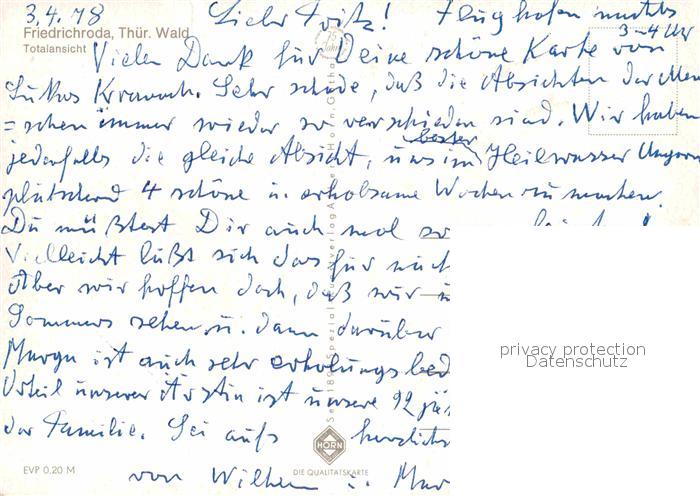 3.4.78 Lieber Fritz! Flughafen nachts
3-4 Uhr
Friedrichroda, Thür. Wald
Totalansicht
Vielen Dank für Deine schöne Karte von
Lukas Kranach. Sehr schade, daß die Absichten der Men
=schen immer wieder so verschieden sind. Wir haben
jedenfalls die gleiche Absicht, uns im besten Heilwasser Ungarns
plätschernd 4 schöne u. erholsame Wochen zu machen.
Du müßtest Dir auch mal so
Vielleicht läßt sich das für
Aber wir hoffen doch, daß wir
Sommers sehen u. dann darüber
Marga ist auch sehr erholungsbed
Urteil unserer Ärztin ist unsere 92 jäh
der Familie. Sei aufs herzlichs
von Wilhelm u. Mar
EVP 0,20 M
HORN
DIE QUALITÄTSKARTE
privacy protection
Datenschutz